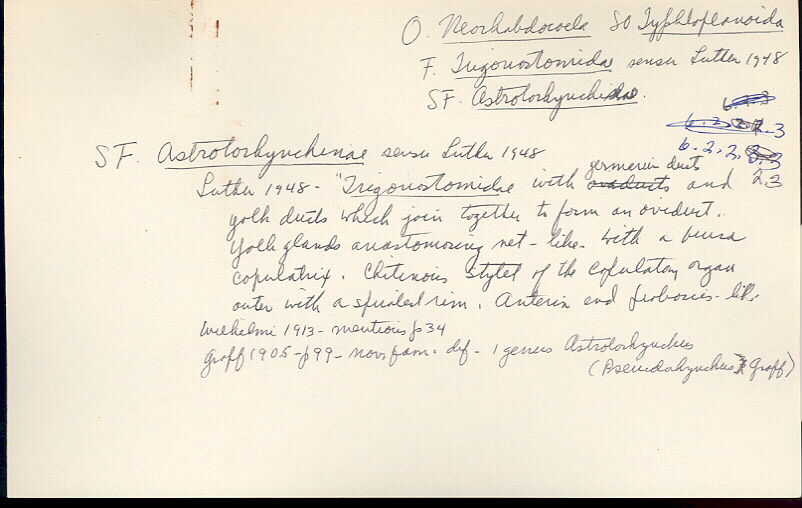 O. Neorhabdocoela SO Typhloplanoida
F. Trigonostomidae sensu Luther 1948
SF. Astrotorhynchidae.
6.2.2.
2.3
SF. Astrotorhynchinae sensu Luther 1948
germarin ducts
Luther 1948 - "Trigonostomidae with oviducts and
yolk ducts which join together to form an oviduct.
Yolk glands anastomosing net-like. With a bursa
copulatrix. Chitinous stylet of the copulatory organ
outer with a spiraled rim. Anterior end proboscis-like.
Wilhelmi 1913 - mentions p 34
Graff 1905 - p 99 - nov. fam. def - 1 genus Astrotorhynchus
(Pseudorhynchus Graff)